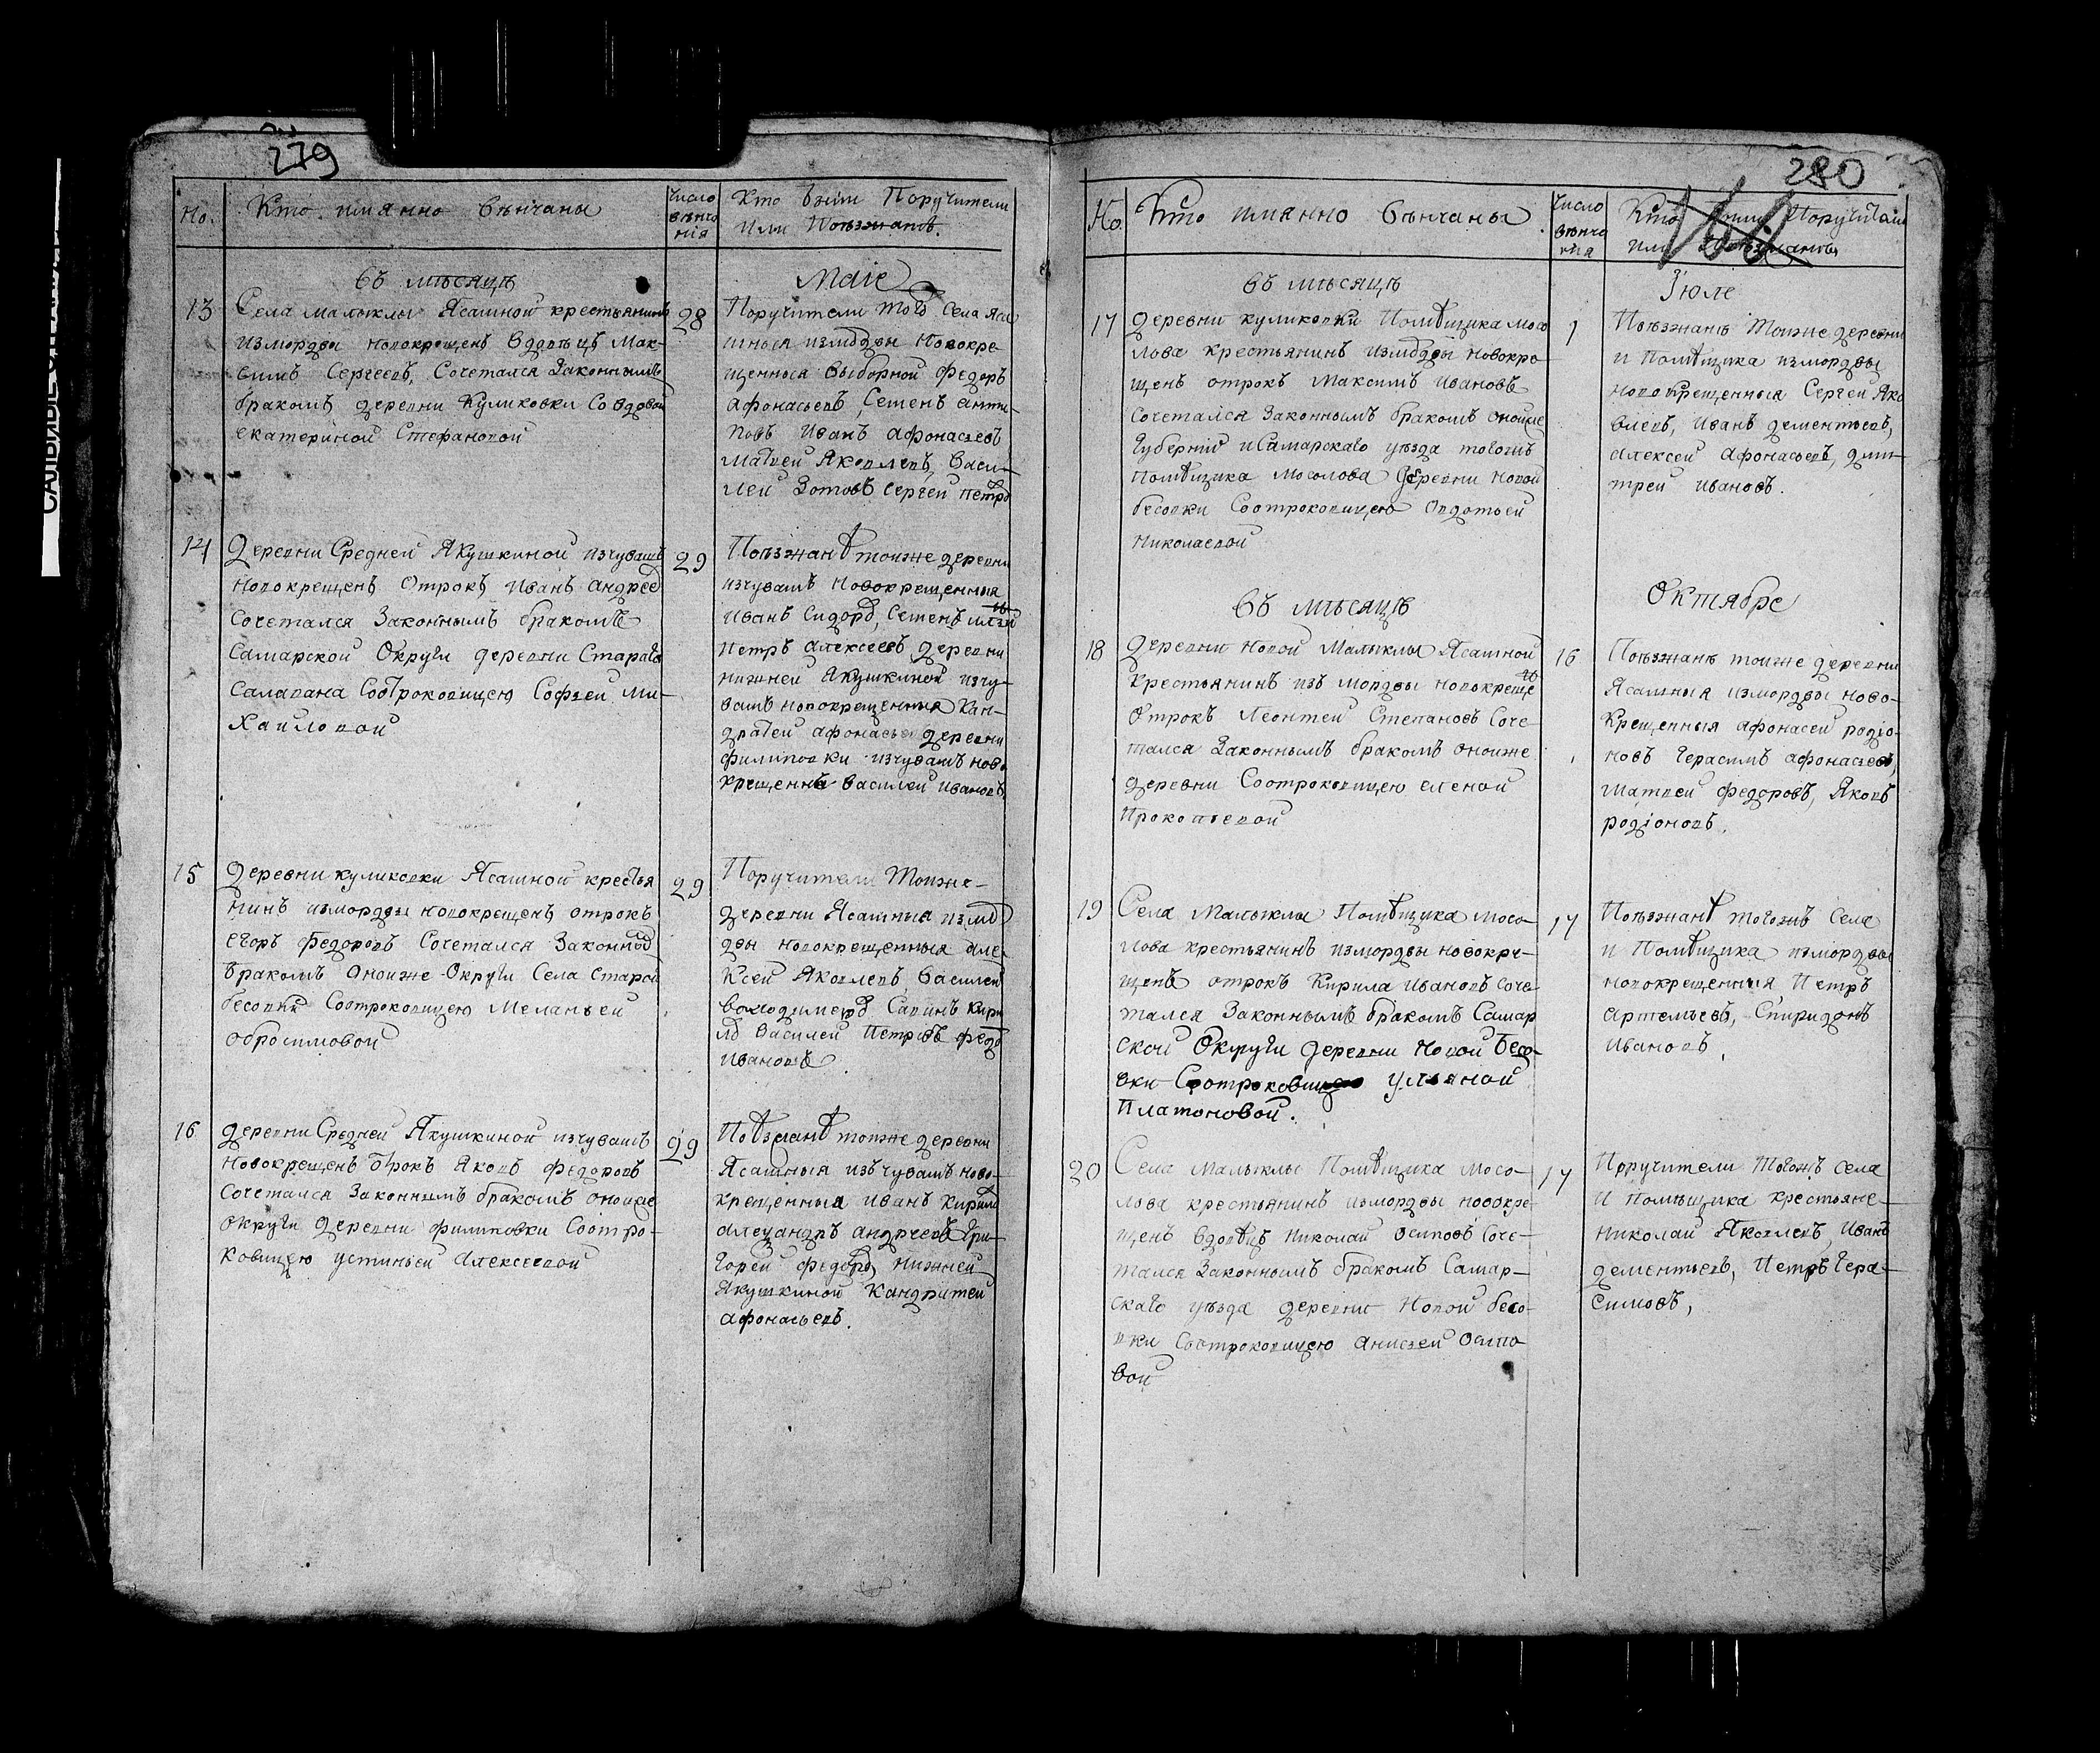 279
Но.
Кто имянно венчаны
Число
венча
нія
Кто были Поручители
или Поезжанѣ.
въ месяцѣ
Маіе
13
Села малыклы Ясашной крестьянинъ
измордвы новокрещенъ вдовецъ Мак-
симъ Сергеевъ, Сочетался Законнымъ
бракомъ деревни Куликовки Со вдовой
екатериной Стефановой
28
Поручители того Села Яса
шныя измодвы Новокре
щенныя выборной Федоръ
Афонасьевъ, Семенъ анти-
повъ Иванъ Афонасьевъ
Матвеи Яковлевъ, Васи-
леи Зотовъ Сергеи петро
14
Деревни Средней Якушкиной изчувашъ
новокрещенъ Отрокъ Иванъ Андрее
Сочетался Законнымъ бракомъ
Самарской Округи деревни Стараго
Салавана Соотроковицею Софьеи Ми-
хаиловой
29
Поезжанѣ тоиже деревни
изчувашъ новокрещенныя
Иванъ Сидоро, Семенъ
петръ алексеевъ деревни
нижней Якушкиной изчу-
вашъ новокрещенныя Кан-
дратеи афонасье деревни
филиповки изчувашъ ново
крещеннъ Василеи Ивановъ,
15
Деревни куликовки Ясашной крестья
нинъ измордвы новокрещенъ отрокъ
егоръ Федоровъ Сочетался Законно
бракомъ оноиже Округи Села Старой
бесовки Соотроковицею Меланьеи
обросимовой
29
Поручители Тоиже-
деревни Ясашныя измо
двы новокрещенныя але
ксеи Яковлевъ, Василеи
володимеро Савинъ Кири
ло Василеи Петровъ федо
Ивановъ
16
деревни Средней Якушкиной изчувашъ
новокрещенъ отрокъ Яковъ Федоровъ
Сочетался Законнымъ бракомъ оноиже
Округи деревни филиповки Соотро-
ковицею устиньеи Алексеевой
29
Поезжанѣ тоиже деревни
Ясашныя изъчувашъ ново-
крещенныя иванъ Кирило
алеѯандръ андреевъ Гри-
гореи Федоро, Нижней
Якушкиной Кандратеи
афонасьевъ.
280
Но.
Кто имянно венчаны
Число
венча
нія
Кто были Поручители
или Поезжанѣ
въ месяцѣ
Іюле
17
Деревни куликовки Помѣщика Мосо
лова крестьянинъ измодвы новокре
щенъ отрокъ Максимъ Ивановъ
Сочетался Законнымъ бракомъ оноиже
Губерніи и Самарскаго уезда тогожъ
Помѣщика Мосолова Деревни Новой
бесовки Соотроковицею Овдотьеи
Николаевой
1
Поезжанѣ Тоиже деревни
и Помѣщика измордвы
новокрещенныя Сергеи Яко
влевъ, Иванъ дементьевъ,
алексеи афонасьевъ, дми-
треи ивановъ.
въ месяцѣ
Октябре
18
Деревни Новой Малыклы Ясашной
крестьянинъ изъ мордвы новокреще
Отрокъ Леонтеи Степановъ Соче-
тался Законнымъ бракомъ оноиже
деревни Соотроковицею еленой
Прокопьевой
16
Поезжанѣ тоиже деревни
Ясашныя измордвы ново-
крещенныя афонасеи родіо-
новъ Герасимъ афонасьевъ,
Матвеи Федоровъ, Яковъ
родіоновъ.
19
Села Малыклы Помѣщика Мосо-
лова крестьянинъ измордвы новокре-
щенъ отрокъ Кирила Ивановъ соче
тался Законнымъ бракомъ Самар
ской Округи деревни Новой Бесо-
вки Соотроковицею Ульяной
Платоновой.
17
Поезжанѣ тогожъ Села
и Помѣщика измордвы
новокрещенныя Петръ
Артемьевъ, Спиридонъ
Ивановъ,
20
Села Малыклы Помѣщика Мосо-
лова крестьянинъ измордвы новокре
щенъ вдовецъ Николаи осиповъ Соче-
тался Законнымъ бракомъ Самар-
скаго уезда деревни Новой бесо-
вки Соотроковицею анисьеи Осипо
вой
17
Поручители Тогожъ Села
и помещика крестьяне
Николаи Яковлевъ, Иванъ
дементьевъ, Петръ Гера-
симовъ,